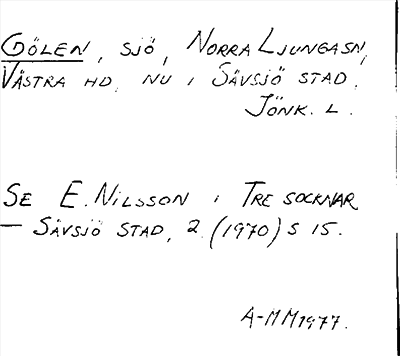 GÖLEN, SJÖ, NORRA LJUNGA SN,
VÄSTRA HD, NU I SÄVSJÖ STAD,
JÖNK. L.
SE E. NILSSON I TRE SOCKNAR
– SÄVSJÖ STAD, 2 (1970) S 15.
A-MM 1977.